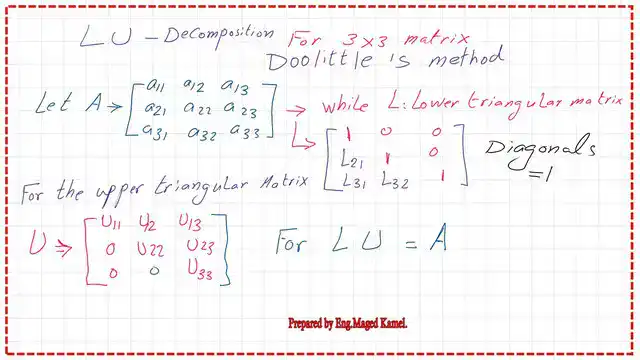 LU - Decomposition For 3x3 matrix
Doolittle's method
Let A → [a11 a12 a13
a21 a22 a23
a31 a32 a33]
→ while L: Lower triangular matrix
L [1 0 0
L21 1 0
L31 L32 1]
Diagonals
=1
For the upper triangular Matrix
U ⇒ [U11 U12 U13
0 U22 U23
0 0 U33]
For LU = A
Prepared by Eng.Maged Kamel.